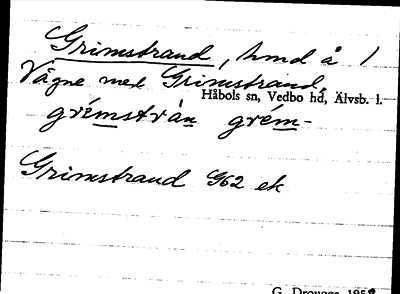 Grimstrand, hmd å 1
Vågne med Grimstrand,
Håbols sn, Vedbo hd, Älvsb. l.
grémstràn grém-
Grimstrand G62 ek
G. Drougge 1952